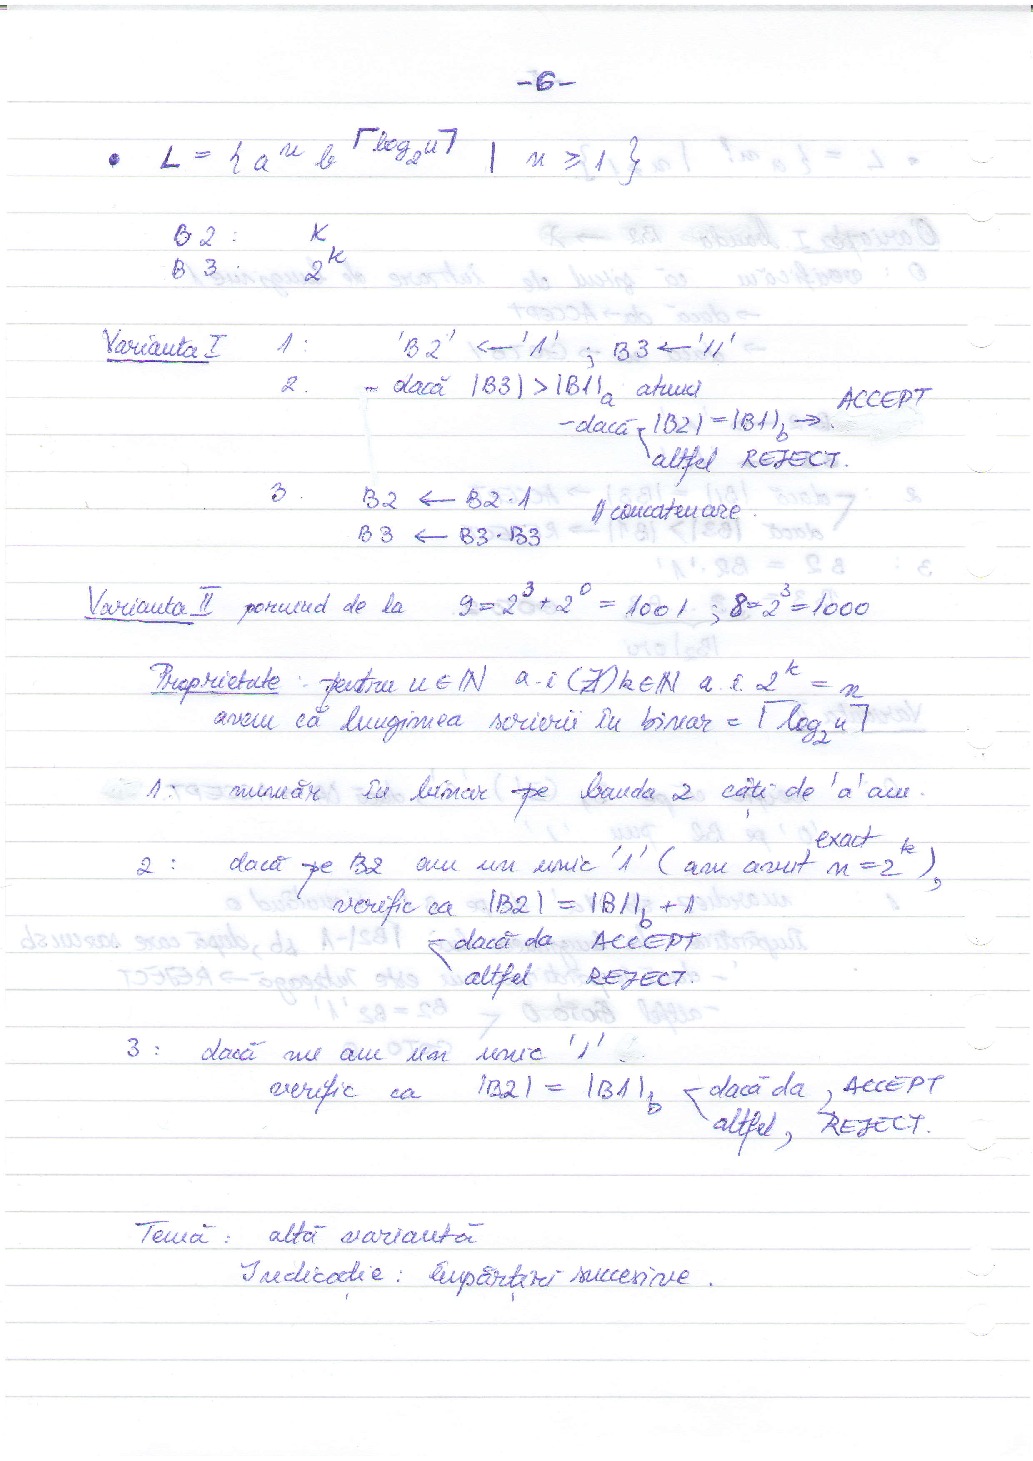 -6-
• L = { a^n b^⌈log₂n⌉ | n ≥ 1 }
B2 : k
B3 : 2^k
Varianta I 1 : 'B2' ← '1' ; B3 ← '11'
2. - dacă |B3| > |B1|_a atunci
- dacă |B2| = |B1|_b → ACCEPT
altfel REJECT.
3. B2 ← B2·1
B3 ← B3·B3 concatenare
Varianta II pornind de la 9 = 2³ + 2⁰ = 1001 ; 8 = 2³ = 1000
Proprietate : pentru n ∈ ℕ a.î (∄) k ∈ ℕ a.î. 2^k = n
avem că lungimea scrierii în binar = ⌈log₂n⌉
1 : număr în binar pe banda 2 câți de 'a' am.
2 : dacă pe B2 am un unic '1' (am avut exact n = 2^k),
verific ca |B2| = |B1|_b + 1
- dacă da ACCEPT
altfel REJECT.
3 : dacă nu am un unic '1'
verific ca |B2| = |B1|_b - dacă da, ACCEPT
altfel, REJECT.
Temă : altă variantă
Indicație : împărțiri succesive.